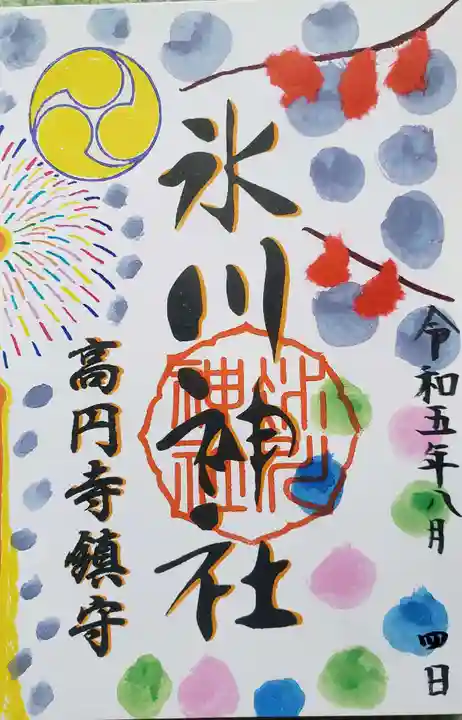 令和五年八月四日
氷川神社
氷川神社
高円寺鎮守